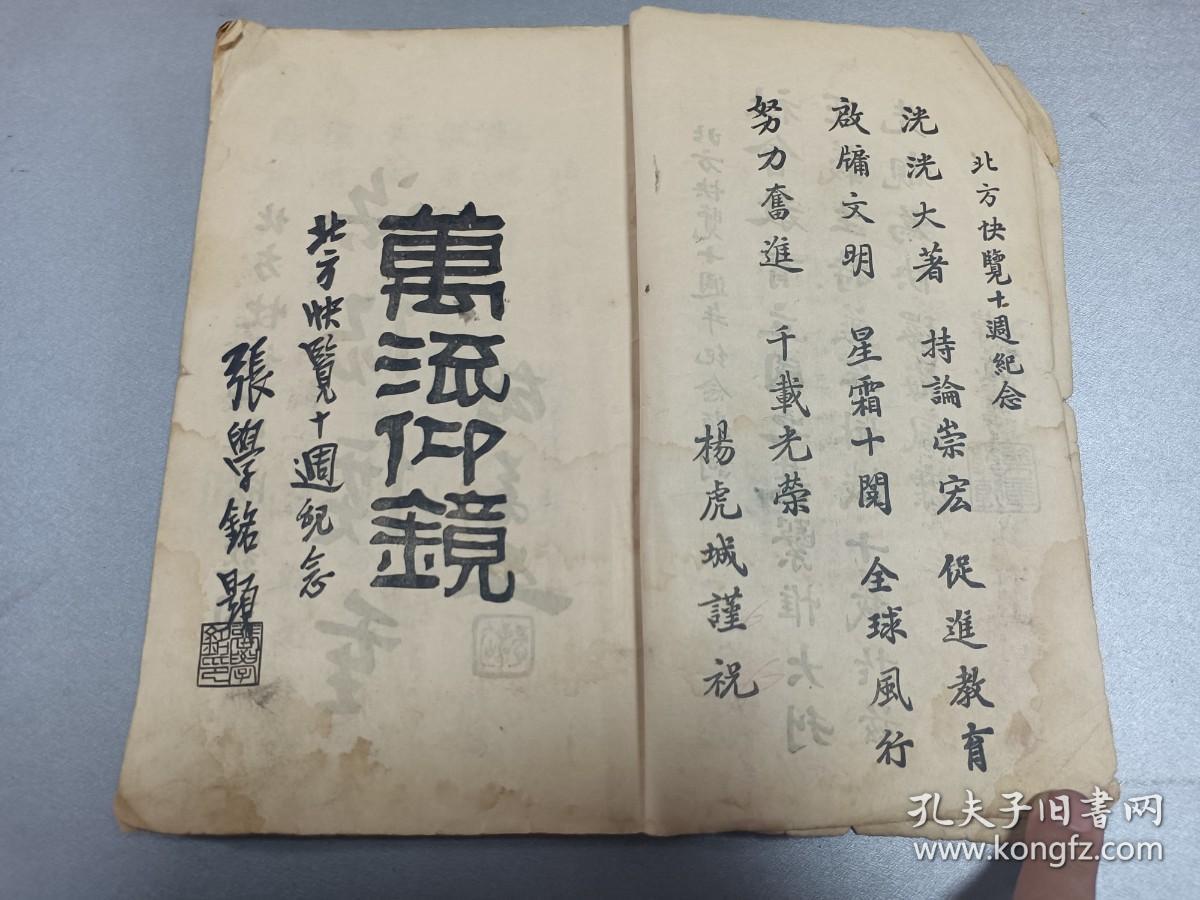 北方快覽十週紀念
洸洸大著　持論崇宏　促進教育
啟牖文明　星霜十閱　全球風行
努力奮進　千載光榮
楊虎城謹祝
萬流仰鏡
北方快覽十週紀念
張學銘題
孔夫子旧书网
www.kongfz.com